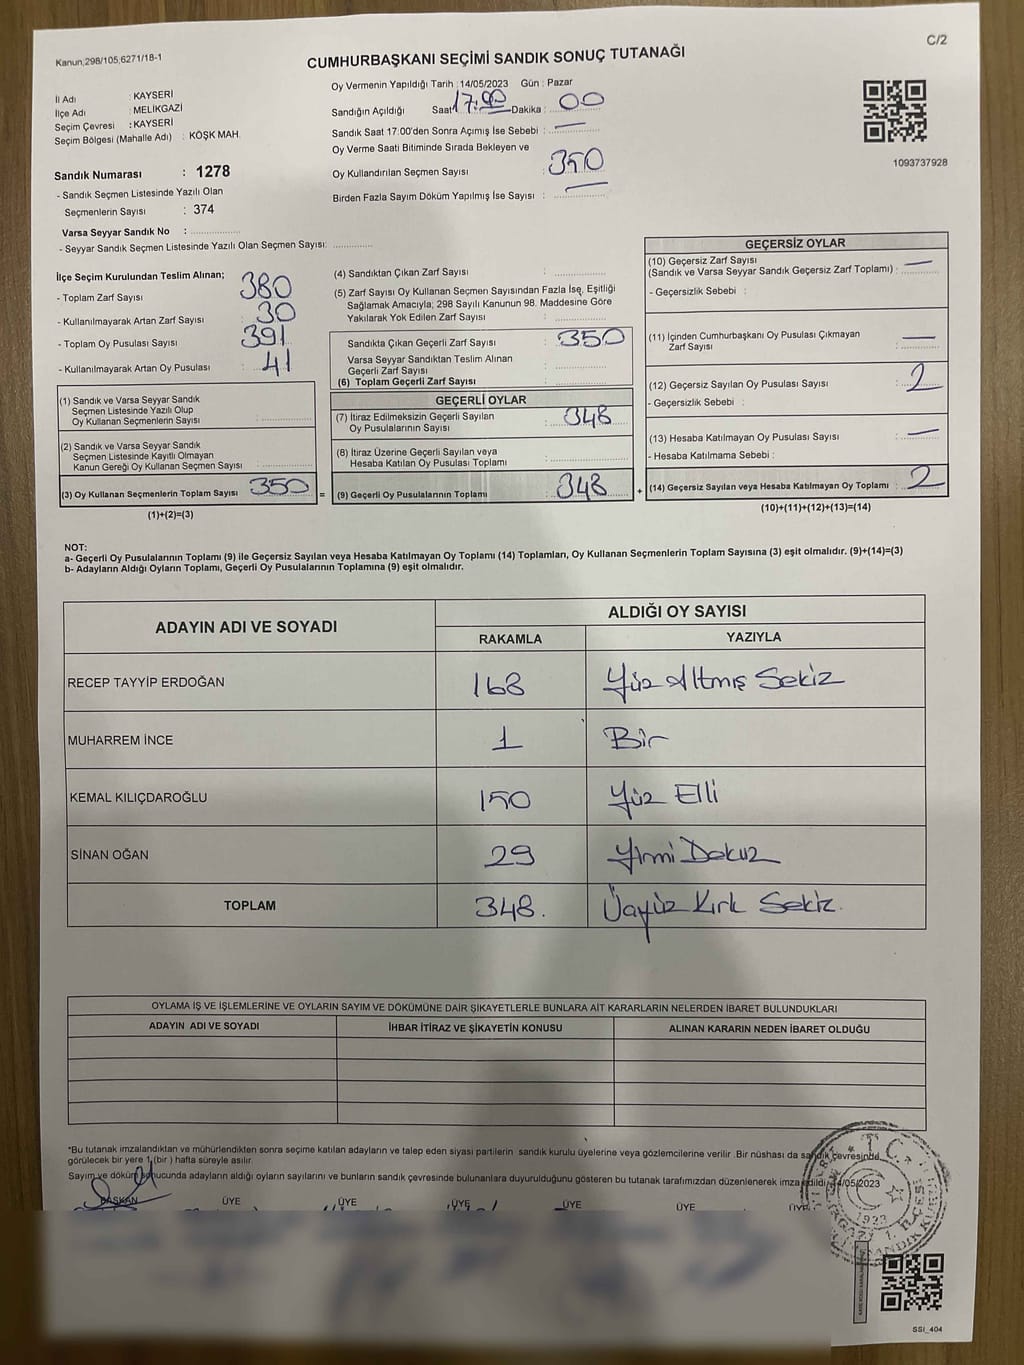 Kanun,298/105,6271/18-1
C/2
CUMHURBAŞKANI SEÇİMİ SANDIK SONUÇ TUTANAĞI
İl Adı : KAYSERİ
İlçe Adı : MELİKGAZİ
Seçim Çevresi : KAYSERİ
Seçim Bölgesi (Mahalle Adı) : KÖŞK MAH.
Sandık Numarası : 1278
- Sandık Seçmen Listesinde Yazılı Olan
Seçmenlerin Sayısı : 374
Varsa Seyyar Sandık No :
- Seyyar Sandık Seçmen Listesinde Yazılı Olan Seçmen Sayısı:
Oy Vermenin Yapıldığı Tarih : 14/05/2023 Gün : Pazar
Sandığın Açıldığı Saat 17:00 Dakika : 00
Sandık Saat 17:00'den Sonra Açımış İse Sebebi : —
Oy Verme Saati Bitiminde Sırada Bekleyen ve
Oy Kullandırılan Seçmen Sayısı : 350
Birden Fazla Sayım Döküm Yapılmış İse Sayısı : —
1093737928
İlçe Seçim Kurulundan Teslim Alınan;
- Toplam Zarf Sayısı 380
- Kullanılmayarak Artan Zarf Sayısı 30
- Toplam Oy Pusulası Sayısı 391
- Kullanılmayarak Artan Oy Pusulası : 41
(1) Sandık ve Varsa Seyyar Sandık
Seçmen Listesinde Yazılı Olup
Oy Kullanan Seçmenlerin Sayısı :
(2) Sandık ve Varsa Seyyar Sandık
Seçmen Listesinde Kayıtlı Olmayan
Kanun Gereği Oy Kullanan Seçmen Sayısı :
(3) Oy Kullanan Seçmenlerin Toplam Sayısı 350 =
(1)+(2)=(3)
(4) Sandıktan Çıkan Zarf Sayısı :
(5) Zarf Sayısı Oy Kullanan Seçmen Sayısından Fazla İse, Eşitliği
Sağlamak Amacıyla; 298 Sayılı Kanunun 98. Maddesine Göre
Yakılarak Yok Edilen Zarf Sayısı :
Sandıkta Çıkan Geçerli Zarf Sayısı : 350
Varsa Seyyar Sandıktan Teslim Alınan
Geçerli Zarf Sayısı :
(6) Toplam Geçerli Zarf Sayısı :
GEÇERLİ OYLAR
(7) İtiraz Edilmeksizin Geçerli Sayılan
Oy Pusulalarının Sayısı : 348
(8) İtiraz Üzerine Geçerli Sayılan veya
Hesaba Katılan Oy Pusulası Toplamı :
(9) Geçerli Oy Pusulalarının Toplamı : 348 +
GEÇERSİZ OYLAR
(10) Geçersiz Zarf Sayısı
(Sandık ve Varsa Seyyar Sandık Geçersiz Zarf Toplamı) : —
- Geçersizlik Sebebi :
(11) İçinden Cumhurbaşkanı Oy Pusulası Çıkmayan
Zarf Sayısı : —
(12) Geçersiz Sayılan Oy Pusulası Sayısı : 2
- Geçersizlik Sebebi :
(13) Hesaba Katılmayan Oy Pusulası Sayısı : —
- Hesaba Katılmama Sebebi :
(14) Geçersiz Sayılan veya Hesaba Katılmayan Oy Toplamı : 2
(10)+(11)+(12)+(13)=(14)
NOT:
a- Geçerli Oy Pusulalarının Toplamı (9) ile Geçersiz Sayılan veya Hesaba Katılmayan Oy Toplamı (14) Toplamları, Oy Kullanan Seçmenlerin Toplam Sayısına (3) eşit olmalıdır. (9)+(14)=(3)
b- Adayların Aldığı Oyların Toplamı, Geçerli Oy Pusulalarının Toplamına (9) eşit olmalıdır.
ADAYIN ADI VE SOYADI
ALDIĞI OY SAYISI
RAKAMLA YAZIYLA
RECEP TAYYİP ERDOĞAN 168 Yüz Altmış Sekiz
MUHARREM İNCE 1 Bir
KEMAL KILIÇDAROĞLU 150 Yüz Elli
SİNAN OĞAN 29 Yirmi Dokuz
TOPLAM 348. Üçyüz Kırk Sekiz.
OYLAMA İŞ VE İŞLEMLERİNE VE OYLARIN SAYIM VE DÖKÜMÜNE DAİR ŞİKAYETLERLE BUNLARA AİT KARARLARIN NELERDEN İBARET BULUNDUKLARI
ADAYIN ADI VE SOYADI İHBAR İTİRAZ VE ŞİKAYETİN KONUSU ALINAN KARARIN NEDEN İBARET OLDUĞU
*Bu tutanak imzalandıktan ve mühürlendikten sonra seçime katılan adayların ve talep eden siyasi partilerin sandık kurulu üyelerine veya gözlemcilerine verilir .Bir nüshası da sandık çevresinde
görülecek bir yere 1 (bir ) hafta süreyle asılır.
Sayım ve döküm sonucunda adayların aldığı oyların sayılarını ve bunların sandık çevresinde bulunanlara duyurulduğunu gösteren bu tutanak tarafımızdan düzenlenerek imza edildi. 14/05/2023
BAŞKAN ÜYE ÜYE ÜYE ÜYE ÜYE ÜYE
T.C.
1923
SSI_404